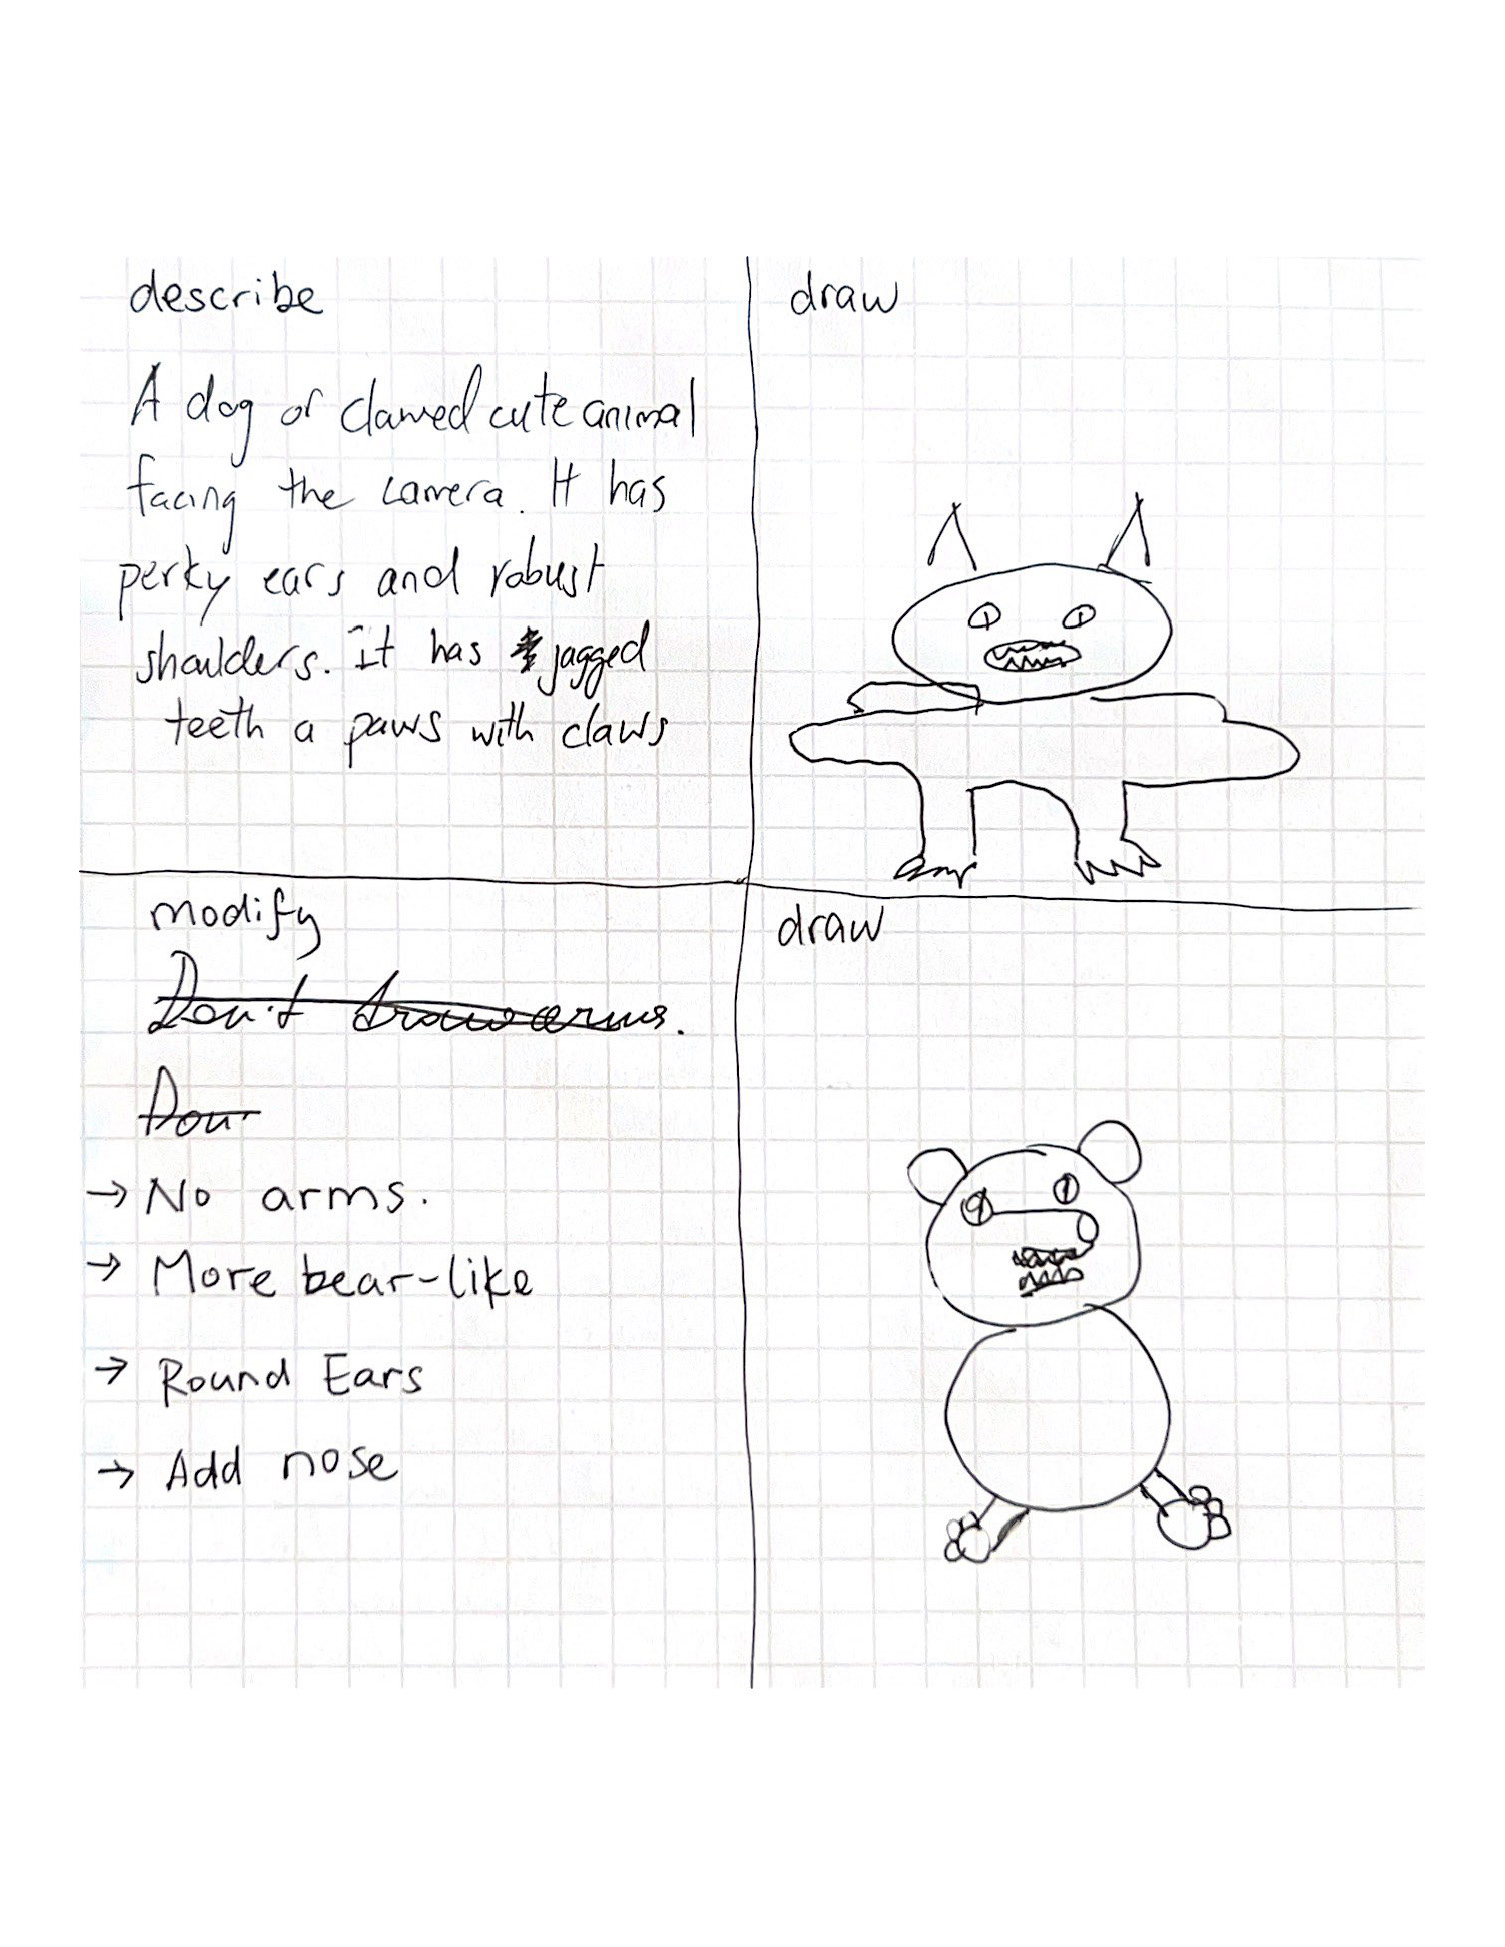 describe
A dog or clawed cute animal
facing the camera. It has
perky ears and robust
shoulders. It has jagged
teeth a paws with claws
draw
modify
Don't draw arms.
Don
→ No arms.
→ More bear-like
→ Round Ears
→ Add nose
draw